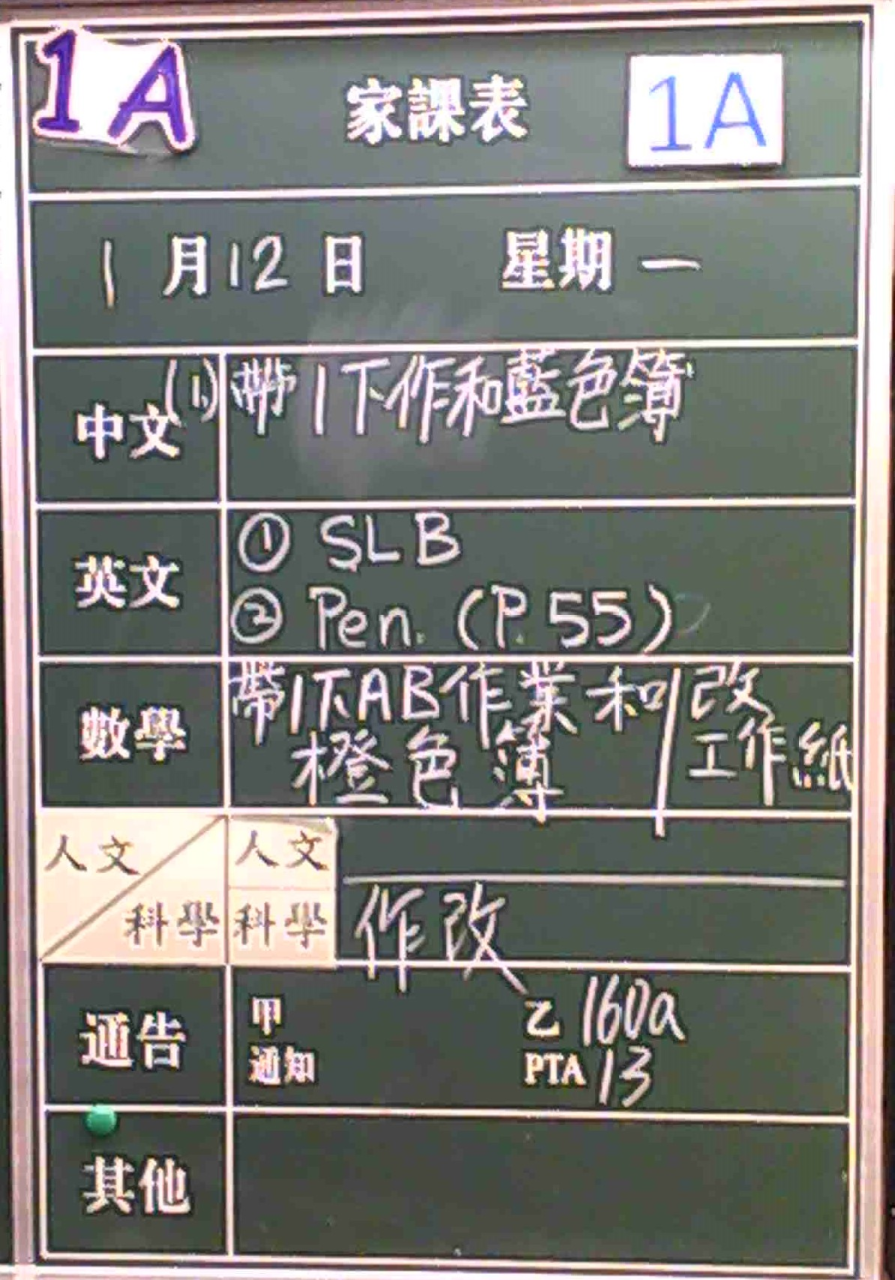 1A 家課表 1A
1月12日 星期一
中文 (1) 帶1下作和藍色簿
英文 ① SLB
② Pen. (P.55)
數學 帶1下AB作業和 改
橙色簿 工作紙
人文 人文
科學 科學 作改
通告 甲 乙 160a
通知 PTA 13
其他